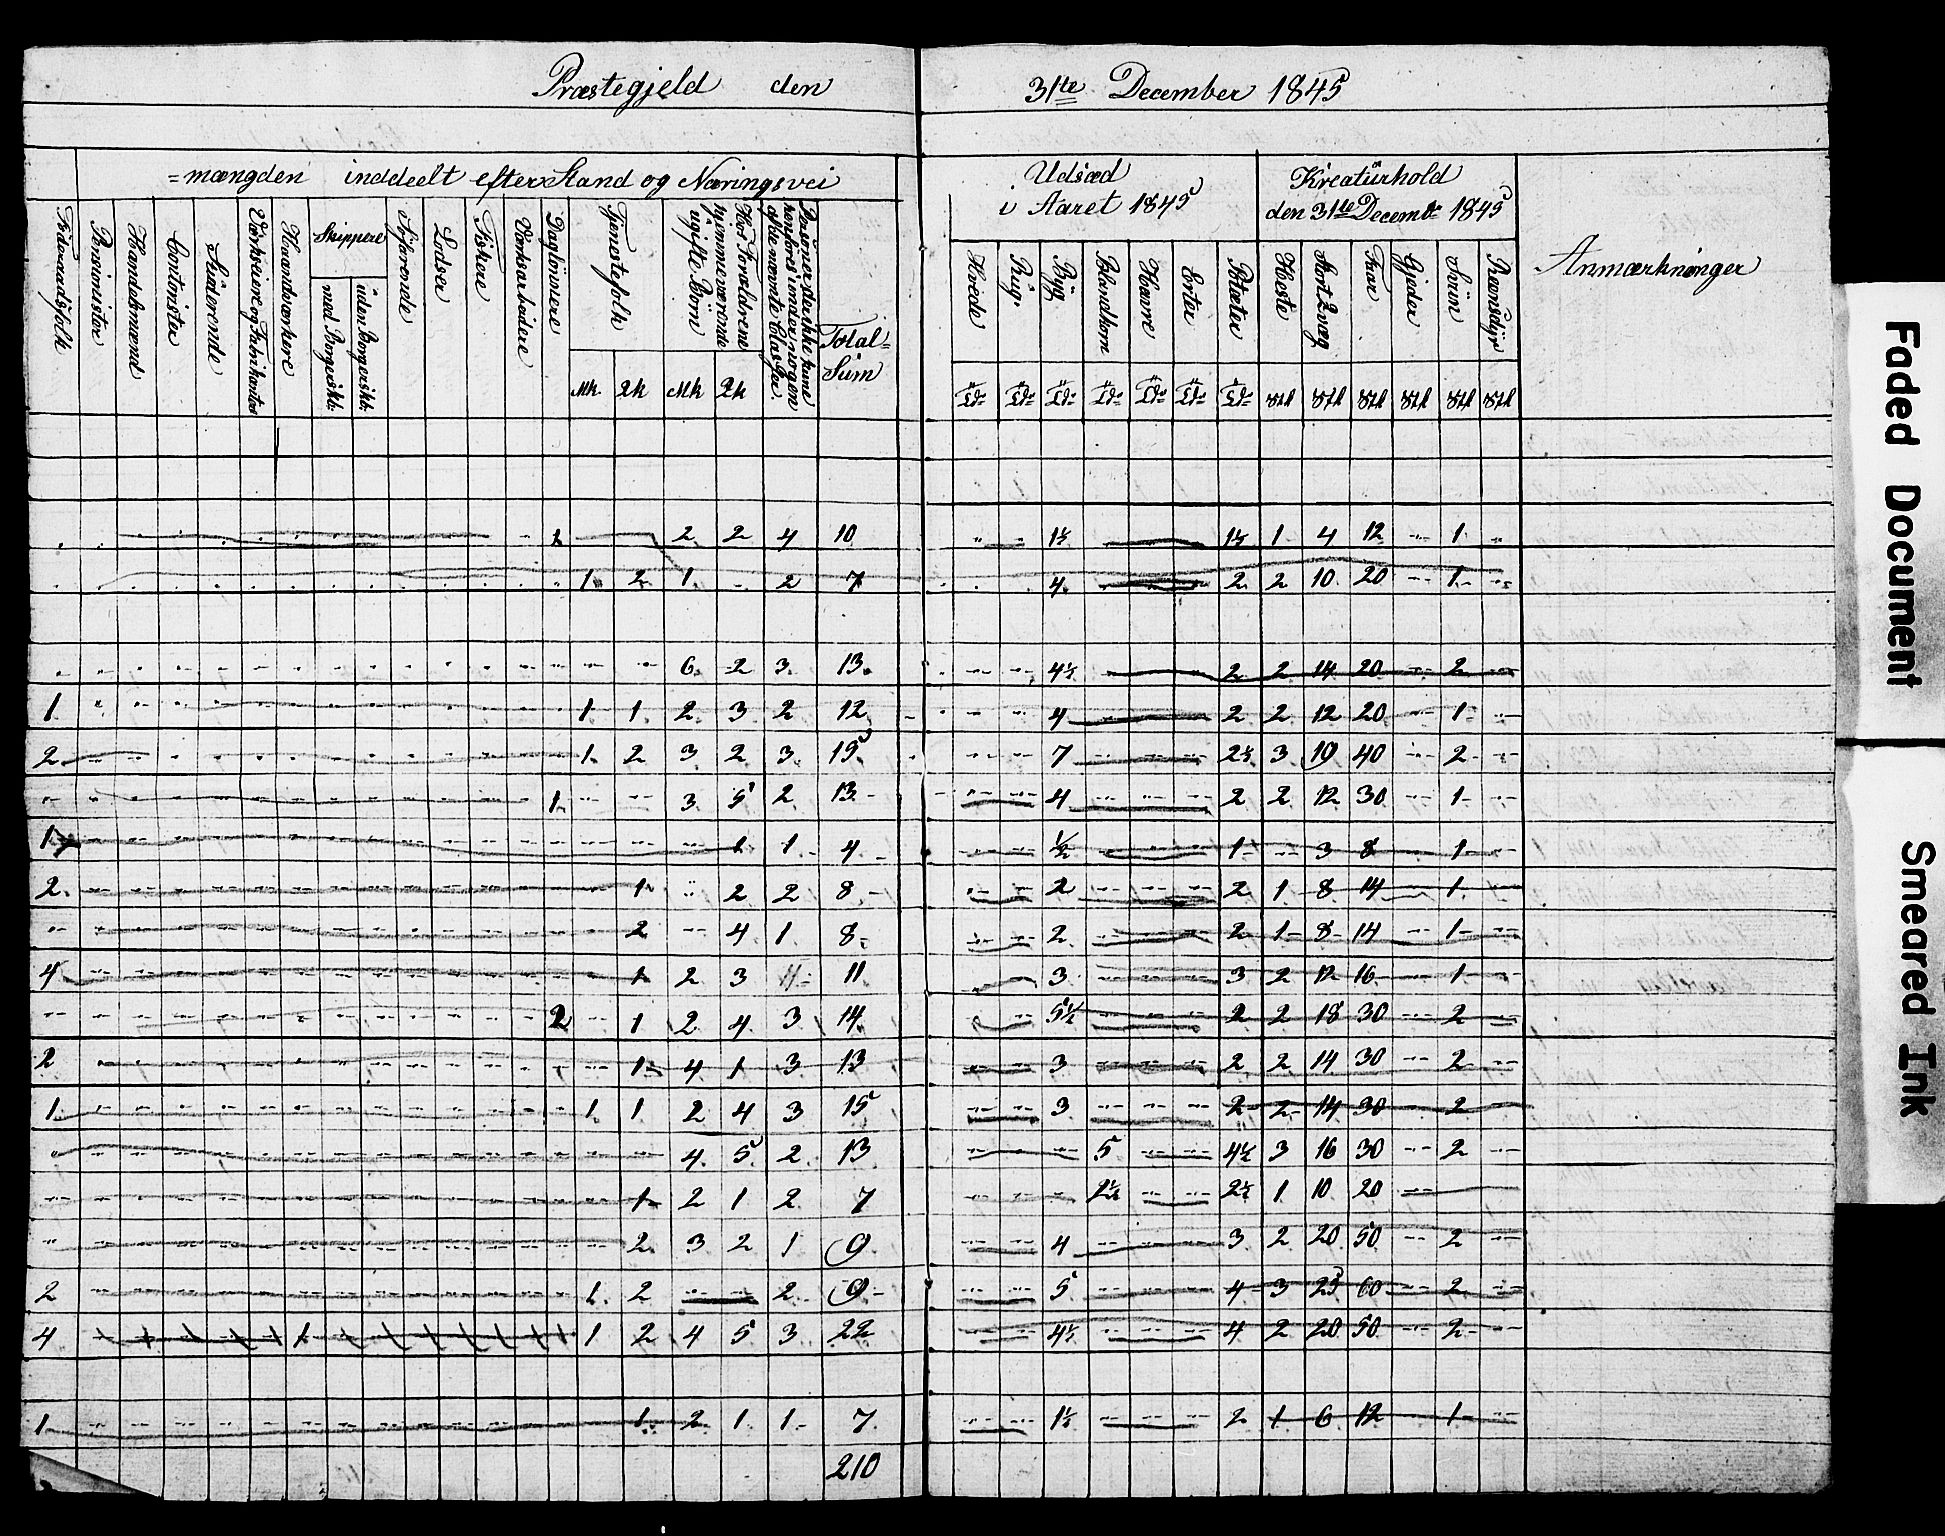 Præstegjeld den 31te December 1845
=mængden inddeelt efter Stand og Næringsvei
Føderaadsfolk
Pensionister
Handelsmænd
Contorister
Studerende
Værkseiere og Fabrikanter
Haandværkere
Skippere
med Borgerskb.
uden Borgerskb.
Søfarende
Lodser
Fiskere
Værksarbeidere
Daglönnere
Tjenestefolk
Mk. Qk
Hos Forældrene hjemmeværende ugifte Börn
Mk Qk
Personer der ikke kune henføres under nogen af de nævnte Classer.
Total=
Sum
Udsæd
i Aaret 1845
Hvede
Rug.
Byg
Blandkorn
Havre
Erter
Potæter
Kreaturhold
den 31te Decembr 1845
Heste
Stort Qvæg
Faar
Gjeder
Sviin
Reensdyr
Anmærkninger
1 2 2 4 10 1½ 1½ 1 4 12 1
1 2 1 2 7 4 2 2 10 20 1
6 2 3 13 4½ 2 2 14 20 2
1 1 1 2 3 2 12 4 2 2 12 20 1
2 1 2 3 2 3 15 7 2½ 3 19 40 2
1 3 5 2 13 4 2 2 12 30 1
1 1 1 4 ½ 1 3 8 1
2 1 2 2 8 2 2 1 8 14 1
2 4 1 8 2 2 1 8 14 1
4 1 2 3 11 3 3 2 12 16 1
2 1 2 4 3 14 5½ 2 2 18 30 2
2 1 4 1 3 13 3 2 2 14 30 2
1 1 1 2 4 3 15 3 2 2 14 30 2
4 5 2 13 5 4½ 3 16 30 2
1 2 1 2 7 2½ 2½ 1 10 20
2 3 2 1 9 4 3 2 20 50 2
2 1 2 2 9 5 4 3 25 60 2
4 1 1 1 2 4 5 3 22 4½ 4 2 20 50 2
1 1 2 1 1 7 1½ 2 1 6 12 1
210
Faded Document
Smeared Ink